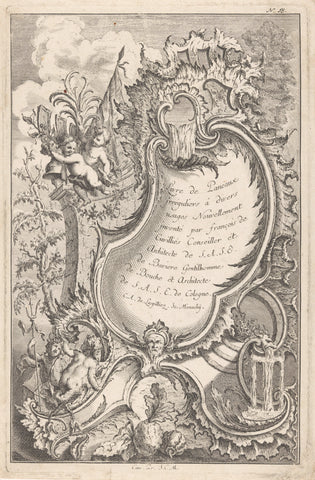 N. 18.
Livre de Paneaux
irreguliers à divers
usages Nouvellement
inventé par François de
Cuvilliés Conseiller et
Architecte de S.A.S.E.
de Baviere Gentilhomme
de Bouche et Architecte
de S.A.S.E. de Cologne.
C.A. de Lespilliez Sc. Monachij.
Cum Pr. S. C. M.